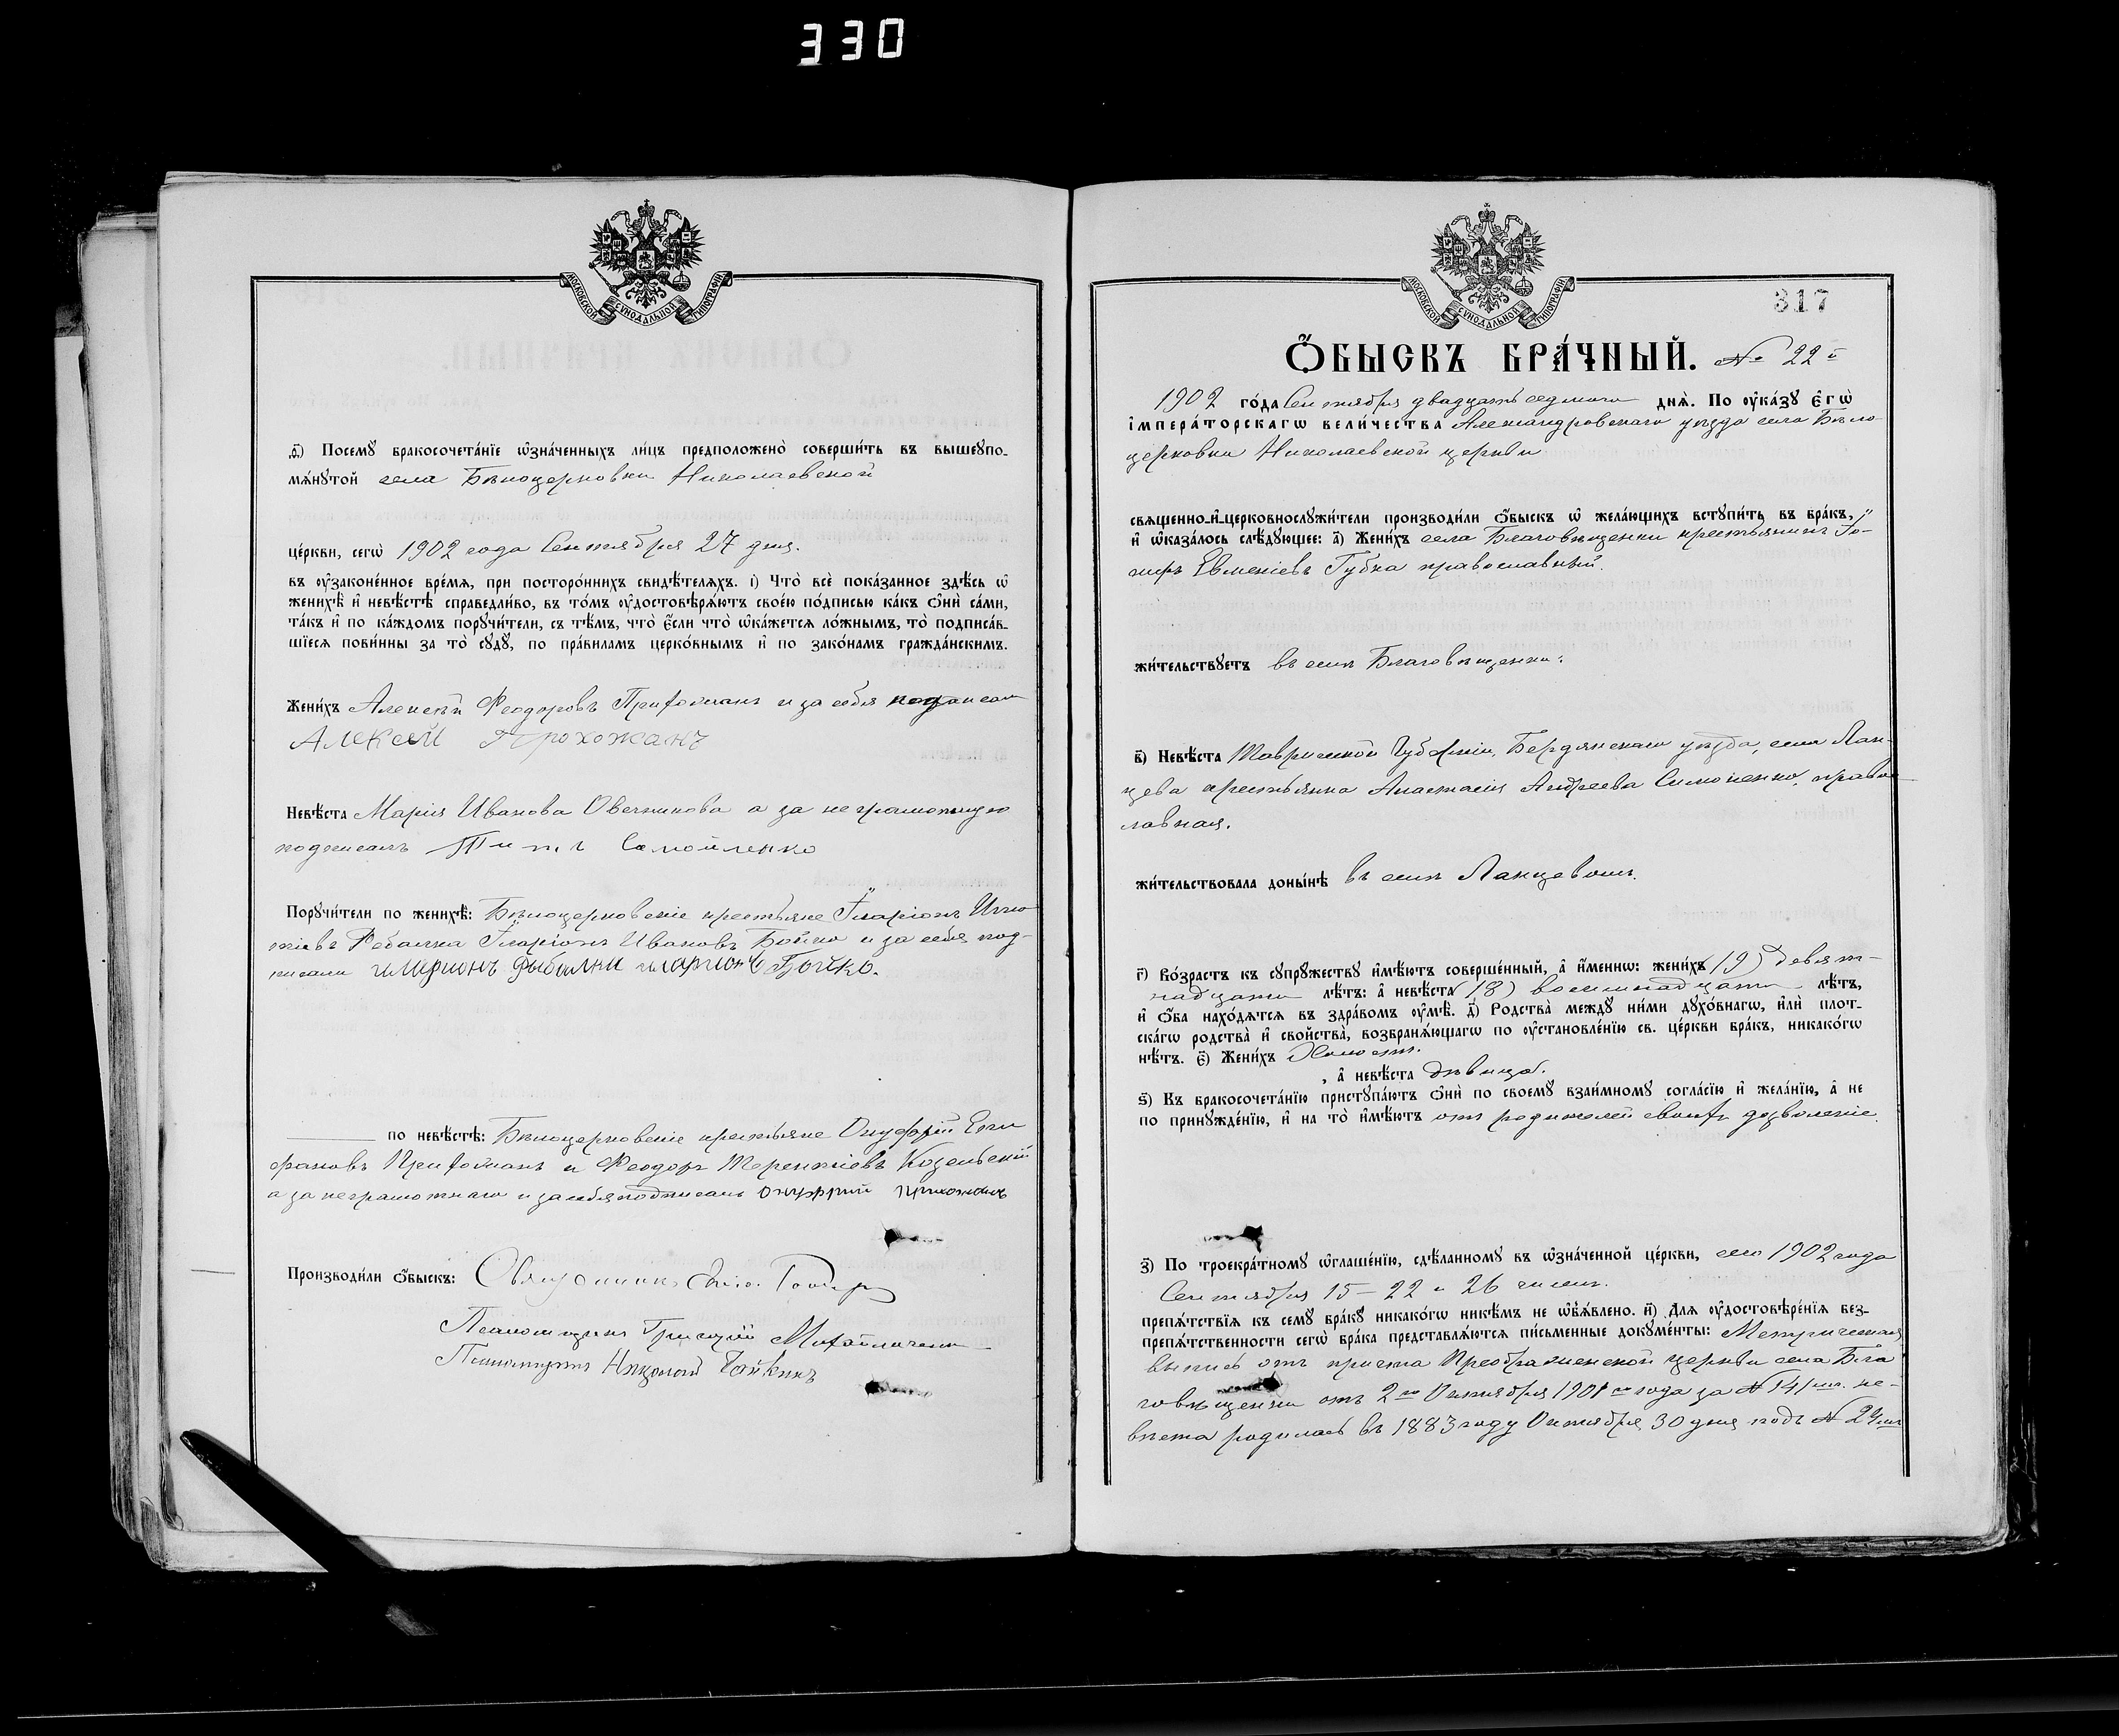 330
МОСКОВСКОЙ СѴНОДАЛЬНОЙ ТИПОГРАФІИ
ѳ҃) Посемꙋ бракосочета́нїе ѡ҆зна́ченныхъ ли́цъ предположено̀ соверши́ть въ вышеꙋпо-
мѧ́нꙋтой села Бѣлоцерковки Николаевской
це́ркви, сегѡ̀ 1902 года Сентября 27 дня.
въ ᲂу҆законе́нное вре́мѧ, при посторо́ннихъ свидѣ́телѧхъ. і҃) Что̀ всѐ пока́занное здѣ́сь ѡ҆
женихѣ̀ и҆ невѣ́стѣ справедли́во, въ то́мъ ᲂу҆достовѣрѧ́ютъ свое́ю по́дписью ка́къ ѻ҆нѝ са́ми,
та́къ и҆ по ка́ждомъ порꙋчи́тели, съ тѣ́мъ, что̀ є҆́сли что̀ ѡ҆ка́жетсѧ ло́жнымъ, то̀ подписа́в-
шїесѧ пови́нны за то̀ сꙋдꙋ̀, по пра́виламъ церко́внымъ и҆ по зако́намъ гражда́нскимъ.
Жени́хъ Алексѣй Ѳеодоровъ Прихожанъ и за себя подписал
Алексей Прохожанъ
Невѣ́ста Марія Иванова Овечникова а за неграмотную
подписалъ Титъ Самойленко
Порꙋчи́тели по женихѣ̀: Бѣлоцерковскіе крестьяне Іларіонъ Игна
тіевъ Рыбалка Іларіонъ Ивановъ Бойко и за себя под-
писали иларионъ Рыбалка иларионъ Бойко.
по невѣ́стѣ: Бѣлоцерковскіе крестьяне Онуфрій Епи
фановъ Прихожанъ и Ѳеодоръ Терентіевъ Козельскій
а за неграмотнаго и за себя подписалъ Онуфрий прихожанъ
Производи́ли ѻ҆́быскъ: Священникъ
Псаломщикъ Григорій Михайличенко
Псаломщикъ Николай
МОСКОВСКОЙ СѴНОДАЛЬНОЙ ТИПОГРАФІИ
317
Ѻ҆́БЫСКЪ БРА́ЧНЫЙ. № 22й
1902 го́да Сентября двадцать седьмого днѧ̀. По ᲂу҆ка́зꙋ є҆гѡ̀
і҆мпера́торскагѡ вели́чества Александровскаго уѣзда села Бѣло-
церковки Николаевской церкви
свѧщенно-и҆-церковнослꙋжи́тели производи́ли ѻ҆́быскъ ѡ҆ жела́ющихъ встꙋпи́ть въ бра́къ,
и҆ ѡ҆каза́лось слѣ́дꙋющее: а҃) Жени́хъ села Благовѣщенки крестьянинъ Іо-
сифъ Евменіевъ Губка православный.
жи́тельствꙋетъ въ селѣ Благовѣщенки.
в҃) Невѣ́ста Таврической Губерніи, Бердянскаго уѣзда, села Лан-
цева крестьянка Анастасія Андреева Симоненко, правос
лавная.
жи́тельствовала доны́нѣ въ селѣ Ланцевомъ.
г҃) Во́зрастъ къ сꙋпрꙋ́жествꙋ и҆мѣ́ютъ соверше́нный, а҆ и҆́меннѡ: жени́хъ (19) девят-
надцати лѣ́тъ: а҆ невѣ́ста (18) восемнадцати лѣ́тъ,
и҆ ѻ҆́ба нахо́дѧтсѧ въ здра́вомъ ᲂу҆мѣ̀. д҃) Родства̀ междꙋ̀ ни́ми дꙋхо́внагѡ, и҆лѝ плот-
ска́гѡ родства̀ и҆ сво́йства̀, возбранѧ́ющагѡ по ᲂу҆становле́нїю св. це́ркви бра́къ, никако́гѡ
нѣ́тъ. є҃) Жени́хъ Холостъ.
, а҆ невѣ́ста дѣвица.
ѕ҃) Къ бракосочета́нїю пристꙋпа́ютъ ѻ҆нѝ по своемꙋ̀ взаи́мномꙋ согла́сїю и҆ жела́нїю, а҆ не
по принꙋжде́нїю, и҆ на то̀ и҆мѣ́ютъ отъ родителей своихъ дозволеніе.
з҃) По троекра́тномꙋ ѡ҆глаше́нїю, сдѣ́ланномꙋ въ ѡ҆зна́ченной це́ркви, сего 1902 года
Сентября 15 – 22 и 26 чиселъ.
препѧ́тствїѧ къ семꙋ̀ бра́кꙋ никако́гѡ никѣ́мъ не ѡ҆б̾ѧ́влено. и҃) Длѧ ᲂу҆достовѣре́нїѧ без-
препѧ́тственности сегѡ̀ бра́ка представлѧ́ютсѧ пи́сьменные докꙋме́нты: Метрическая
выпись отъ причта Преображенской церкви села Бла
говѣщенки отъ 2го Октября 1901го года за № 141мъ. не-
вѣста родилась въ 1883 году Октября 30 дня подъ № 24мъ